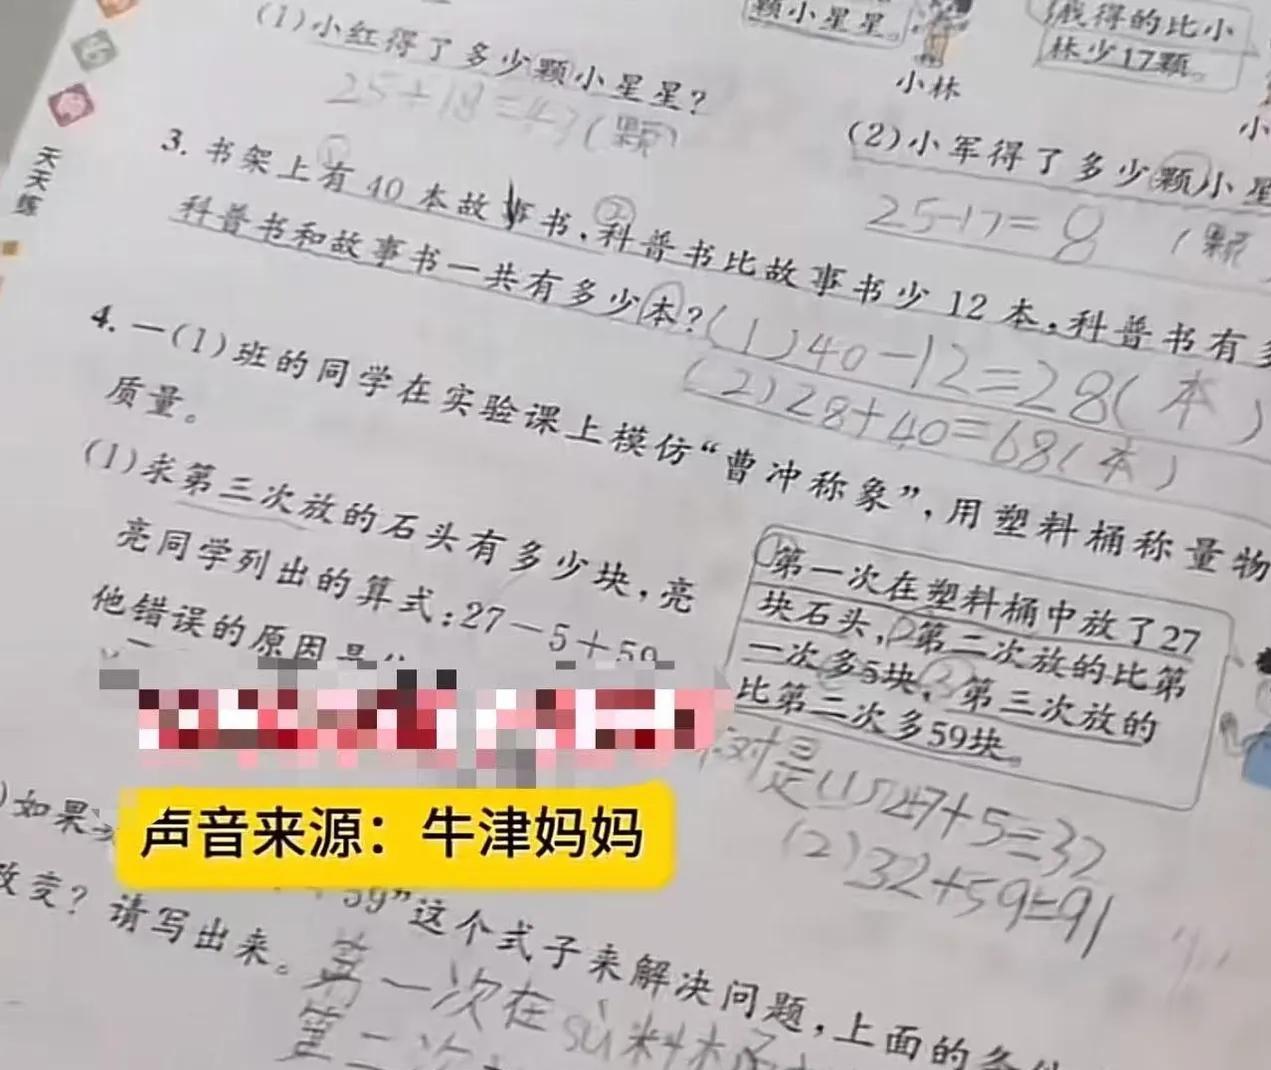 颗小星星。
我得的比小
林少17颗。
小林
(1)小红得了多少颗小星星?
25+18=43(颗)
(2)小军得了多少颗小星
25-17=8(颗
天天练
3. 书架上有40本故事书,科普书比故事书少12本,科普书有
科普书和故事书一共有多少本?
(1)40-12=28(本)
(2)28+40=68(本)
4. 一(1)班的同学在实验课上模仿“曹冲称象”,用塑料桶称量物
质量。
(1)求第三次放的石头有多少块,亮
亮同学列出的算式:27-5+59
他错误的原因是
①第一次在塑料桶中放了27
块石头,②第二次放的比第
一次多5块,③第三次放的
比第二次多59块。
对是(1)27+5=32
(2)32+59=91
声音来源:牛津妈妈
)如果
59”这个式子来解决问题,上面的条
改变?请写出来。
第一次在sù料
第二次